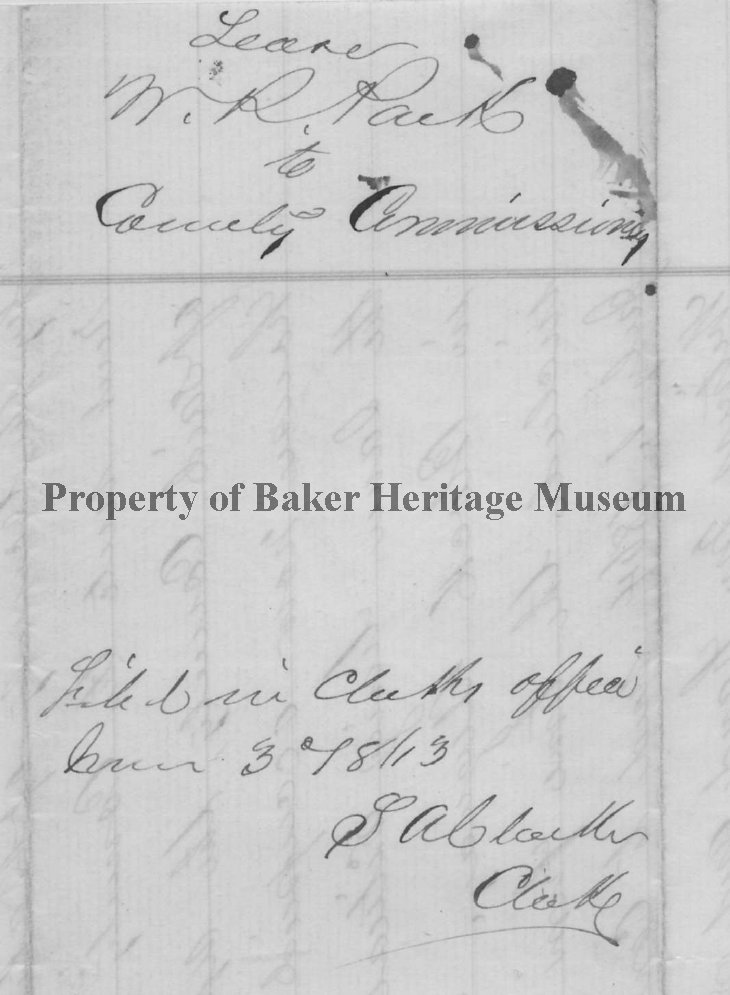 Lease
W. R. Park
to
County Commissioners
Property of Baker Heritage Museum
Filed in Clerks office
June 3 1873
S A
Clerk